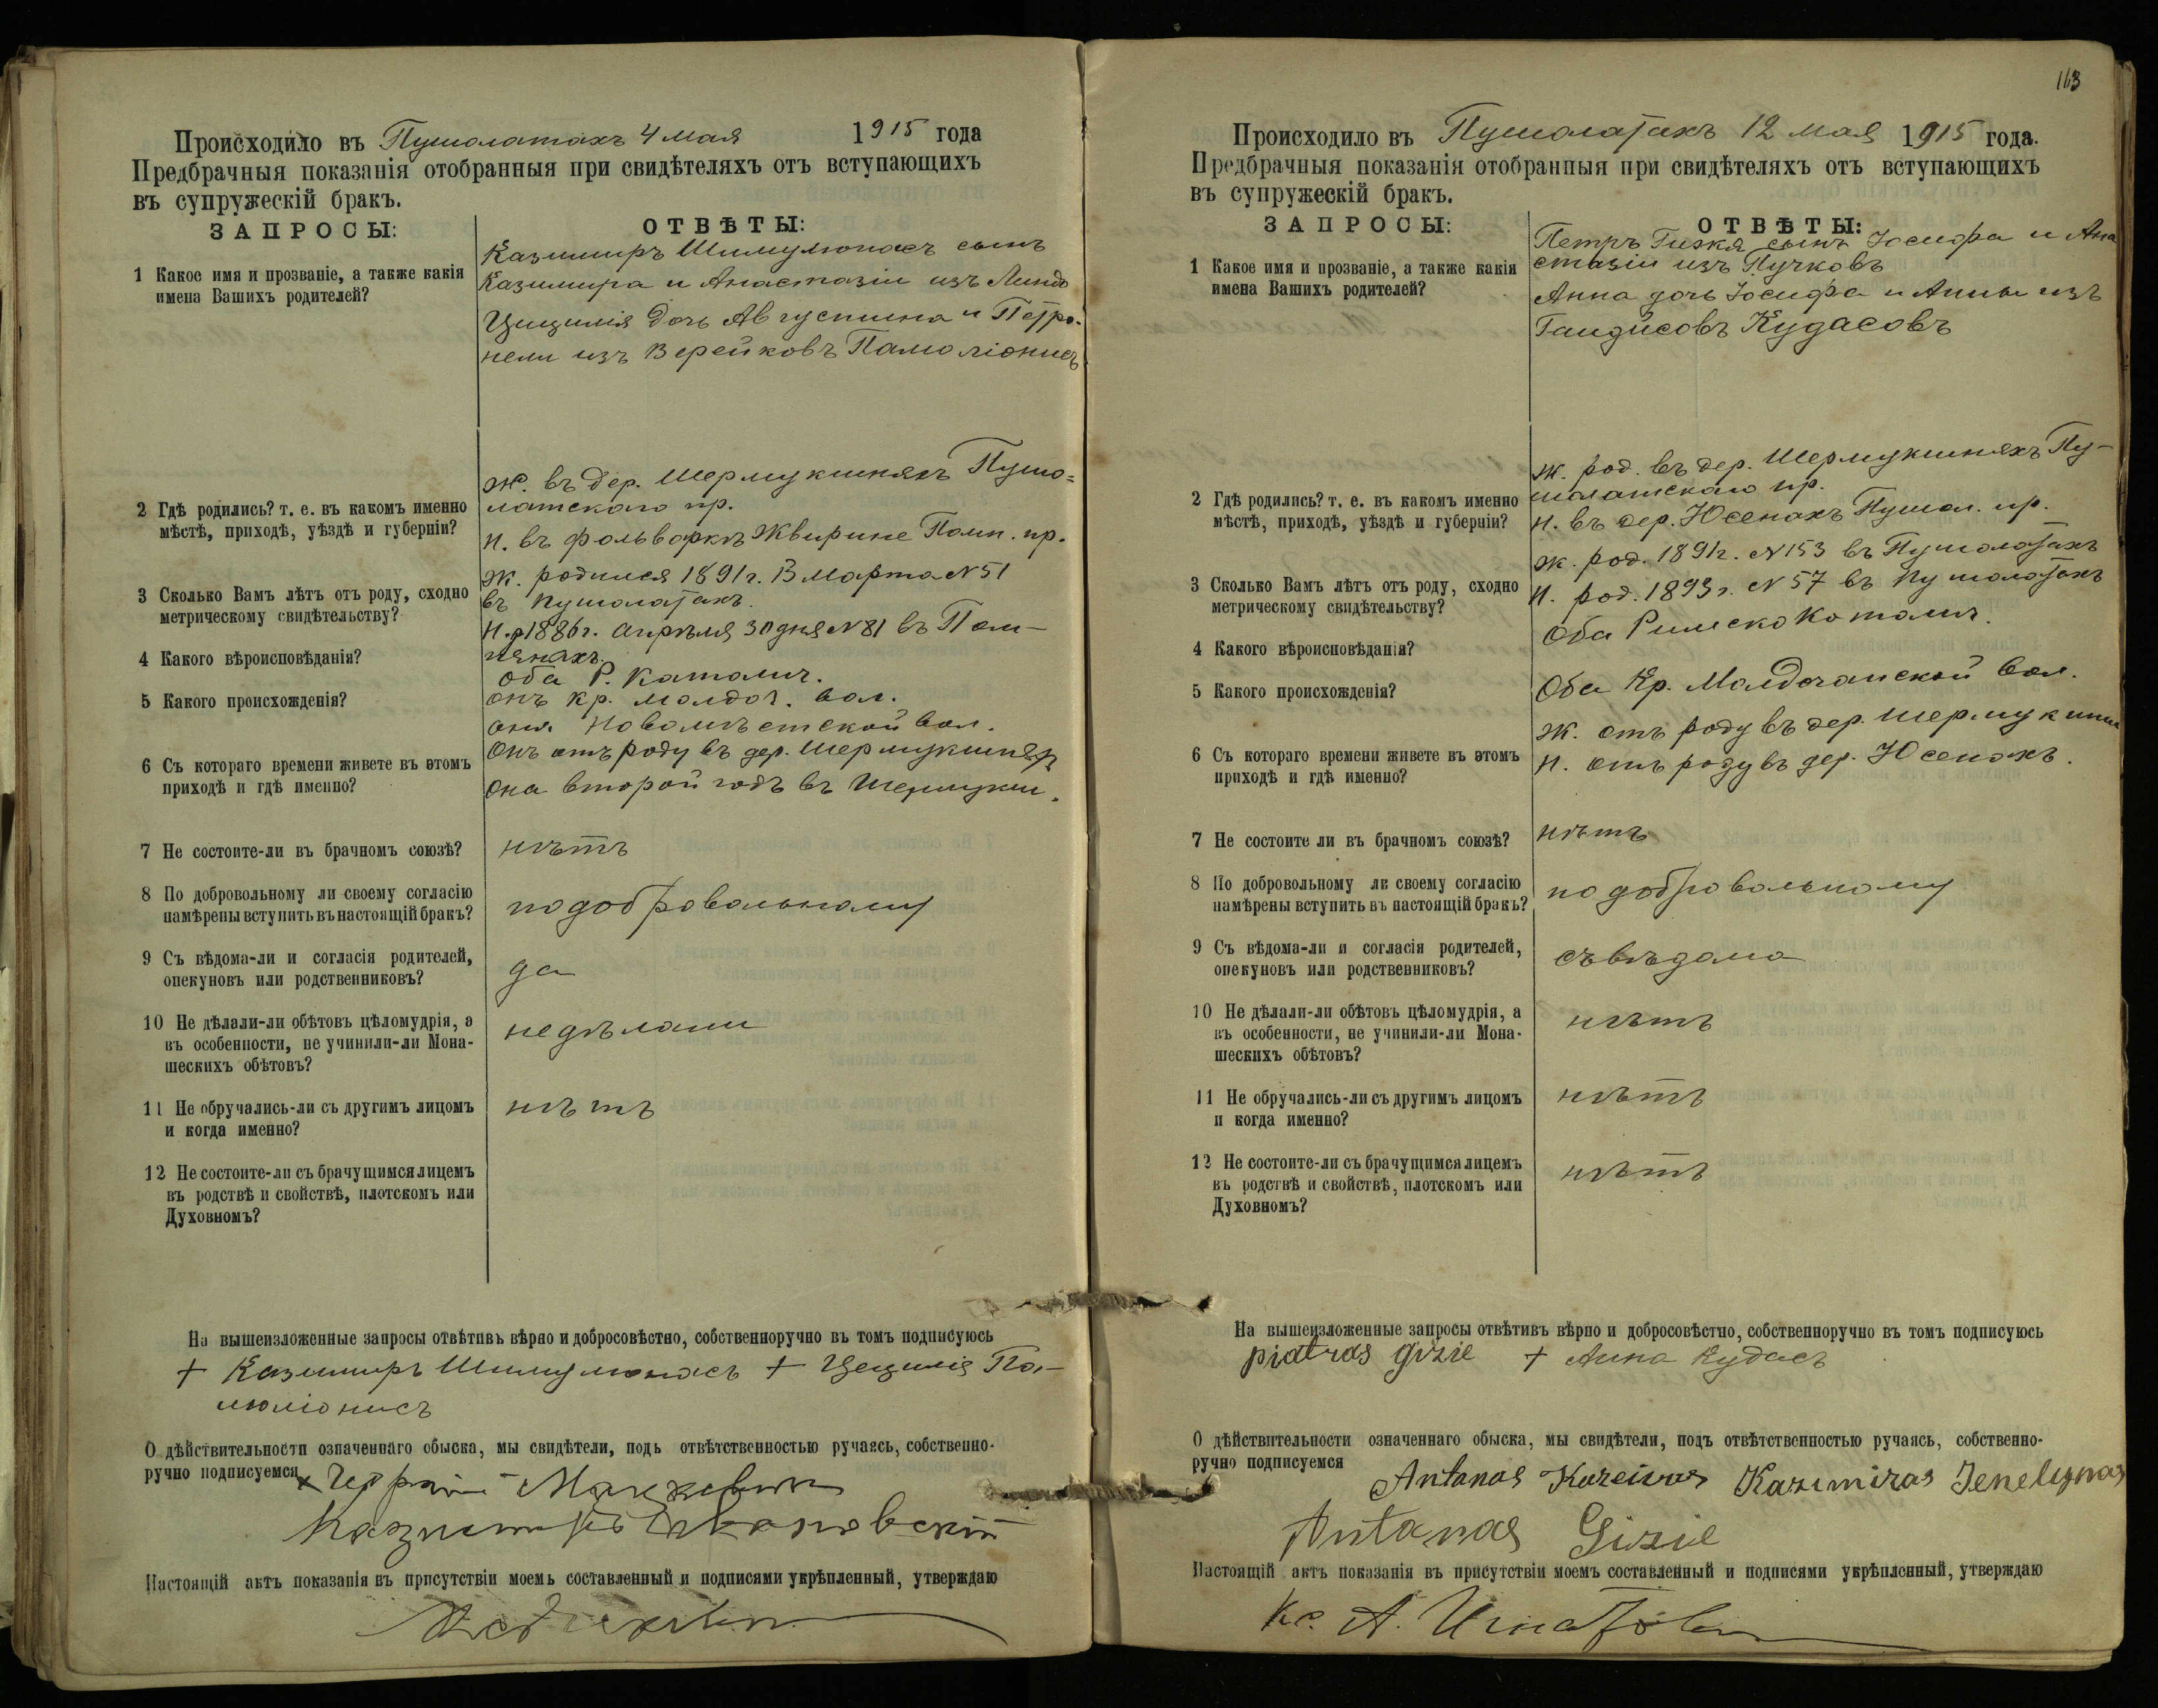 Происходило въ Пушолатахъ 4 мая 1915 года
Предбрачныя показанія отобранныя при свидѣтеляхъ отъ вступающихъ
въ супружескій бракъ.
ЗАПРОСЫ:
ОТВѢТЫ:
1 Какое имя и прозваніе, а также какія
имена Вашихъ родителей?
Казимиръ Шимулюнасъ сынъ
Казимира и Анастазіи изъ Линдо
Цецилія дочь Августина и Петро-
нели изъ Верейковъ Памоліонисъ
2 Гдѣ родились? т. е. въ какомъ именно
мѣстѣ, приходѣ, уѣздѣ и губерніи?
Ж. въ дер. Шермукшняхъ Пушо=
латскаго пр.
Н. въ фольваркѣ Жвирине Помп. пр.
3 Сколько Вамъ лѣтъ отъ роду, сходно
метрическому свидѣтельству?
Ж. родился 1891 г. 13 Марта N 51
въ Пушолатахъ.
Н. р 1886 г. апрѣля 30 дня N 81 въ Пом-
пянахъ.
4 Какого вѣроисповѣданія?
Оба Р. Католич.
5 Какого происхожденія?
онъ кр. молдоч. вол.
она Новомѣстской вол.
6 Съ котораго времени живете въ этомъ
приходѣ и гдѣ именно?
Онъ отъ роду въ дер. Шермукшняхъ
Она второй годъ въ Шермукш.
7 Не состоите-ли въ брачномъ союзѣ?
нѣтъ
8 По добровольному ли своему согласію
намѣрены вступить въ настоящій бракъ?
по добровольному
9 Съ вѣдома-ли и согласія родителей,
опекуновъ или родственниковъ?
да
10 Не дѣлали-ли обѣтовъ цѣломудрія, а
въ особенности, не учинили-ли Мона-
шескихъ обѣтовъ?
не дѣлали
11 Не обручались-ли съ другимъ лицомъ
и когда именно?
нѣтъ
12 Не состоите-ли съ брачущимся лицемъ
въ родствѣ и свойствѣ, плотскомъ или
Духовномъ?
На вышеизложенные запросы отвѣтивъ вѣрно и добросовѣстно, собственноручно въ томъ подписуюсь
+ Казимиръ Шимулюнасъ + Цецилія Па-
мюліонисъ
О дѣйствительности означеннаго обыска, мы свидѣтели, подъ отвѣтственностью ручаясь, собственно-
ручно подписуемся
Казимиръ
Настоящій актъ показанія въ присутствіи моемъ составленный и подписями укрѣпленный, утверждаю
163
Происходило въ Пушолатахъ 12 мая 1915 года.
Предбрачныя показанія отобранныя при свидѣтеляхъ отъ вступающихъ
въ супружескій бракъ.
ЗАПРОСЫ:
ОТВѢТЫ:
1 Какое имя и прозваніе, а также какія
имена Вашихъ родителей?
Петръ Гизжя сынъ Іосифа и Ана
стазіи изъ Пучковъ
Анна дочь Іосифа и Анны изъ
Гандисовъ Кудасовъ
2 Гдѣ родились? т. е. въ какомъ именно
мѣстѣ, приходѣ, уѣздѣ и губерніи?
Ж. род. въ дер. Шермукшняхъ Пу-
шолатскаго пр.
Н. въ дер. Юсенахъ Пушол. пр.
3 Сколько Вамъ лѣтъ отъ роду, сходно
метрическому свидѣтельству?
Ж. род. 1891 г. N 153 въ Пушолатахъ
Н. род. 1893 г. N 57 въ Пушолатахъ
4 Какого вѣроисповѣданія?
Оба Римско Католич.
5 Какого происхожденія?
Оба Кр. Молдочанской вол.
6 Съ котораго времени живете въ этомъ
приходѣ и гдѣ именно?
Ж. отъ роду въ дер. Шермукшня
Н. отъ роду въ дер. Юсенахъ.
7 Не состоите ли въ брачномъ союзѣ?
нѣтъ
8 По добровольному ли своему согласію
намѣрены вступить въ настоящій бракъ?
по добровольному
9 Съ вѣдома-ли и согласія родителей,
опекуновъ или родственниковъ?
съ вѣдома
10 Не дѣлали-ли обѣтовъ цѣломудрія, а
въ особенности, не учинили-ли Мона-
шескихъ обѣтовъ?
нѣтъ
11 Не обручались-ли съ другимъ лицомъ
и когда именно?
нѣтъ
12 Не состоите-ли съ брачущимся лицемъ
въ родствѣ и свойствѣ, плотскомъ или
Духовномъ?
нѣтъ
На вышеизложенные запросы отвѣтивъ вѣрно и добросовѣстно, собственноручно въ томъ подписуюсь
piatras gizie + Анна Кудасъ
О дѣйствительности означеннаго обыска, мы свидѣтели, подъ отвѣтственностью ручаясь, собственно-
ручно подписуемся
Antanas Kazeivas Kazimiras Jenelynas
Antanas Gizie
Настоящій актъ показанія въ присутствіи моемъ составленный и подписями укрѣпленный, утверждаю
Кс. А.